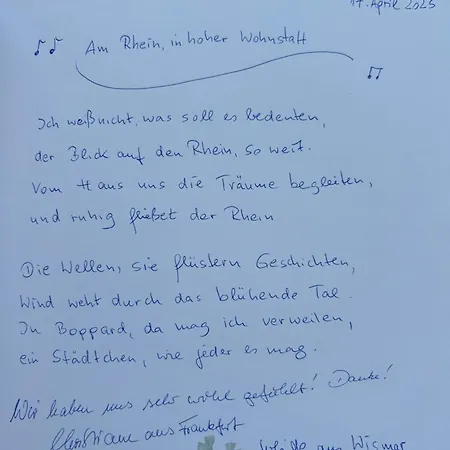 17. April 2025
Am Rhein, in hoher Wohnstatt
Ich weiß nicht, was soll es bedeuten,
der Blick auf den Rhein, so weit.
Vom Haus uns die Träume begleiten,
und ruhig fließet der Rhein
Die Wellen, sie flüstern Geschichten,
Wind weht durch das blühende Tal.
In Boppard, da mag ich verweilen,
ein Städtchen, wie jeder es mag.
Wir haben uns sehr wohl gefühlt! Danke!
Christiane aus Frankfurt
aus Wismar